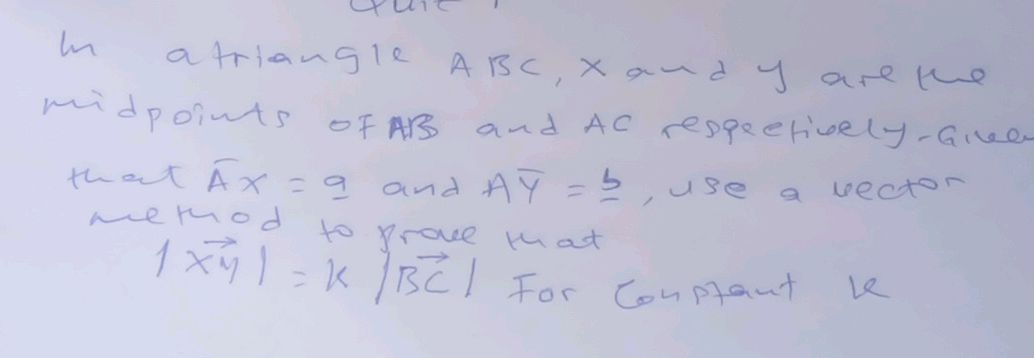 In a triangle ABC, X and y are the
midpoints of AB and AC respectively. Given
that A̅X = a̲ and AY̅ = b̲, use a vector
method to prove that
|X⃗y| = k |B⃗C| For constant k